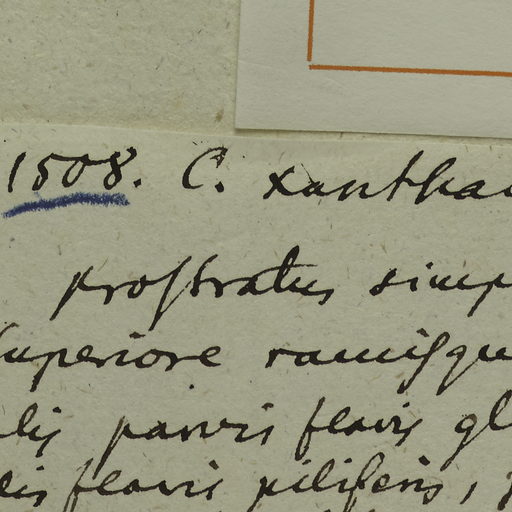 1508. C. xantha
prostratus simp
superiore ramisqu
lis parvis flavis gl
eis flavis piliferis,